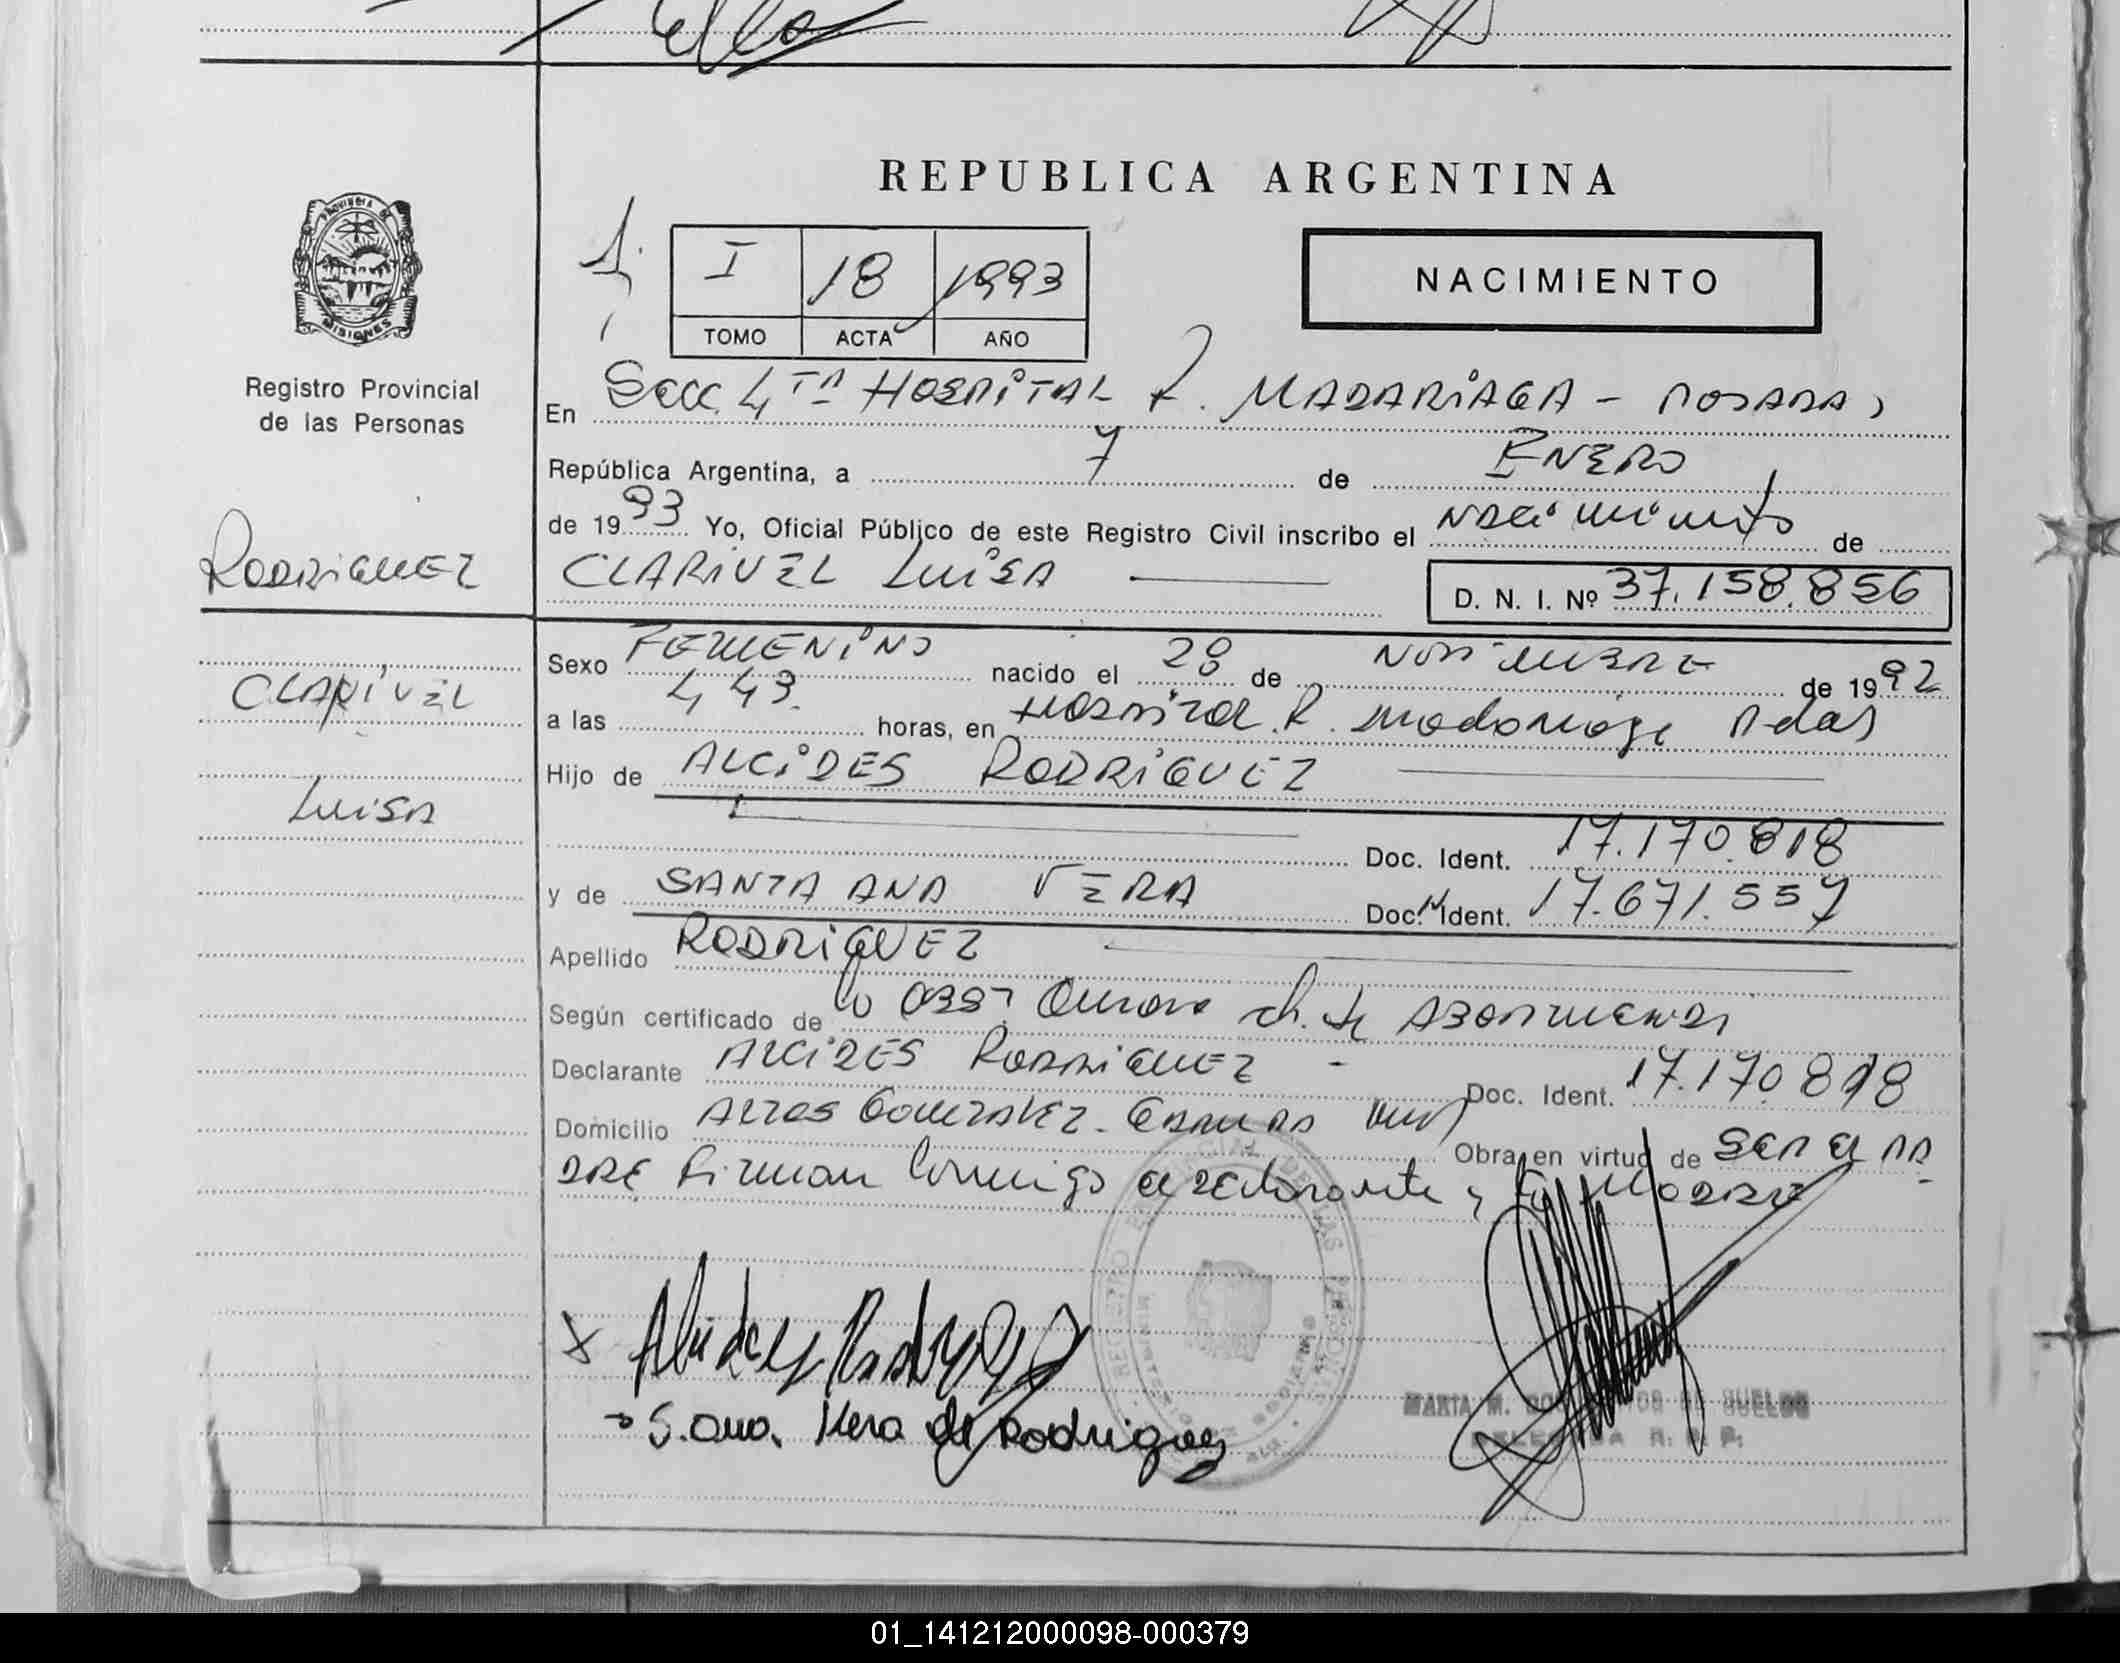 REPUBLICA ARGENTINA
PROVINCIA DE
MISIONES
Registro Provincial
de las Personas
I 18 1993
TOMO ACTA AÑO
NACIMIENTO
En Secc. 4TA HOSPITAL R. MADARIAGA - POSADAS
República Argentina, a 7 de ENERO
de 1993 Yo, Oficial Público de este Registro Civil inscribo el nacimiento de
RODRIGUEZ
CLARIVEL LUISA
D. N. I. Nº 37.158.856
CLARIVEL
LUISA
Sexo FEMENINO nacido el 28 de NOVIEMBRE de 1992
a las 4,43. horas, en HOSPITAL R. Madariaga Pdas
Hijo de ALCIDES RODRIGUEZ
Doc. Ident. 17.170.818
y de SANTA ANA VERA Doc. Ident. 17.671.557
Apellido RODRIGUEZ
Según certificado de la OBST. de
Declarante ALCIDES RODRIGUEZ - Doc. Ident. 17.170.818
Domicilio Obra en virtud de SER EL PA-
DRE Firman Conmigo el declarante y la MADRE
Alcides Rodriguez
S. Ana. Vera de Rodriguez
REGISTRO PROVINCIAL DE LAS PERSONAS
MARTA M. DE SUELDO
DELEGADA R. P. P.
01_141212000098-000379